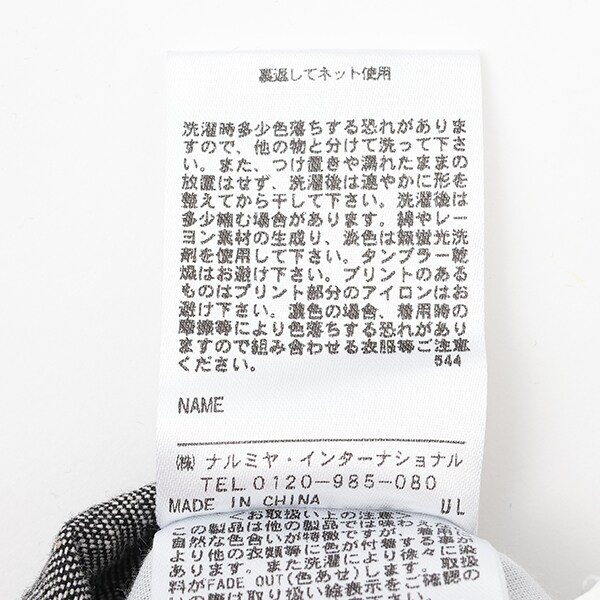 裏返してネット使用
洗濯時多少色落ちする恐れがありま
すので、他の物と分けて洗って下さ
い。また、つけ置きや濡れたままの
放置はせず、洗濯後は速やかに形を
整えてから干して下さい。洗濯後は
多少縮む場合があります。綿やレー
ヨン素材の生成り、淡色は無蛍光洗
剤を使用して下さい。タンブラー乾
燥はお避け下さい。プリントのある
ものはプリント部分のアイロンはお
避け下さい。濃色の場合、着用時の
摩擦等により色落ちする恐れがあり
ますので組み合わせる衣服等ご注意
ください。 544
NAME
(株) ナルミヤ・インターナショナル
TEL.0120-985-080
MADE IN CHINA UL
お取扱い上の注意
この製品は他の
自然な色合いが特徴ですが
より他の衣類等に色が付着する
あります。また洗濯により徐々
料がFADE OUT(色あせ)します。
の際は取り扱い絵表示をご確認の